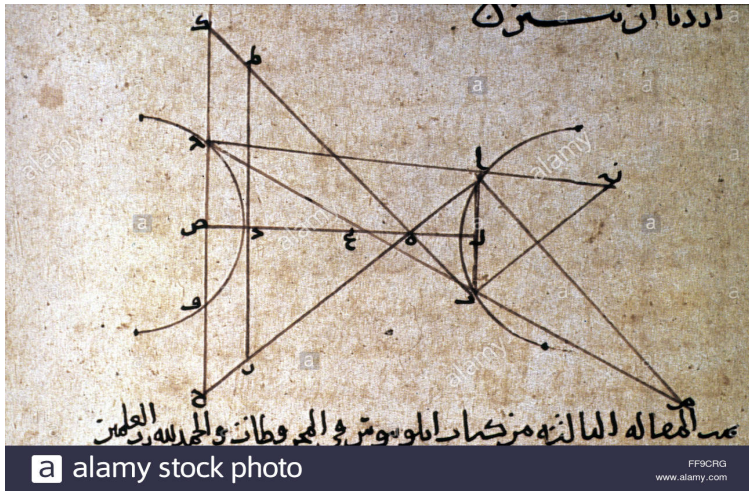 اردنا ان
ك
ط
ا
ص
ه
و
ح
م
تمت المقاله الثالثه من كتاب ابلونيوس في المخروطات والحمد لله رب العلمين
a alamy stock photo
FF9CRG
www.alamy.com